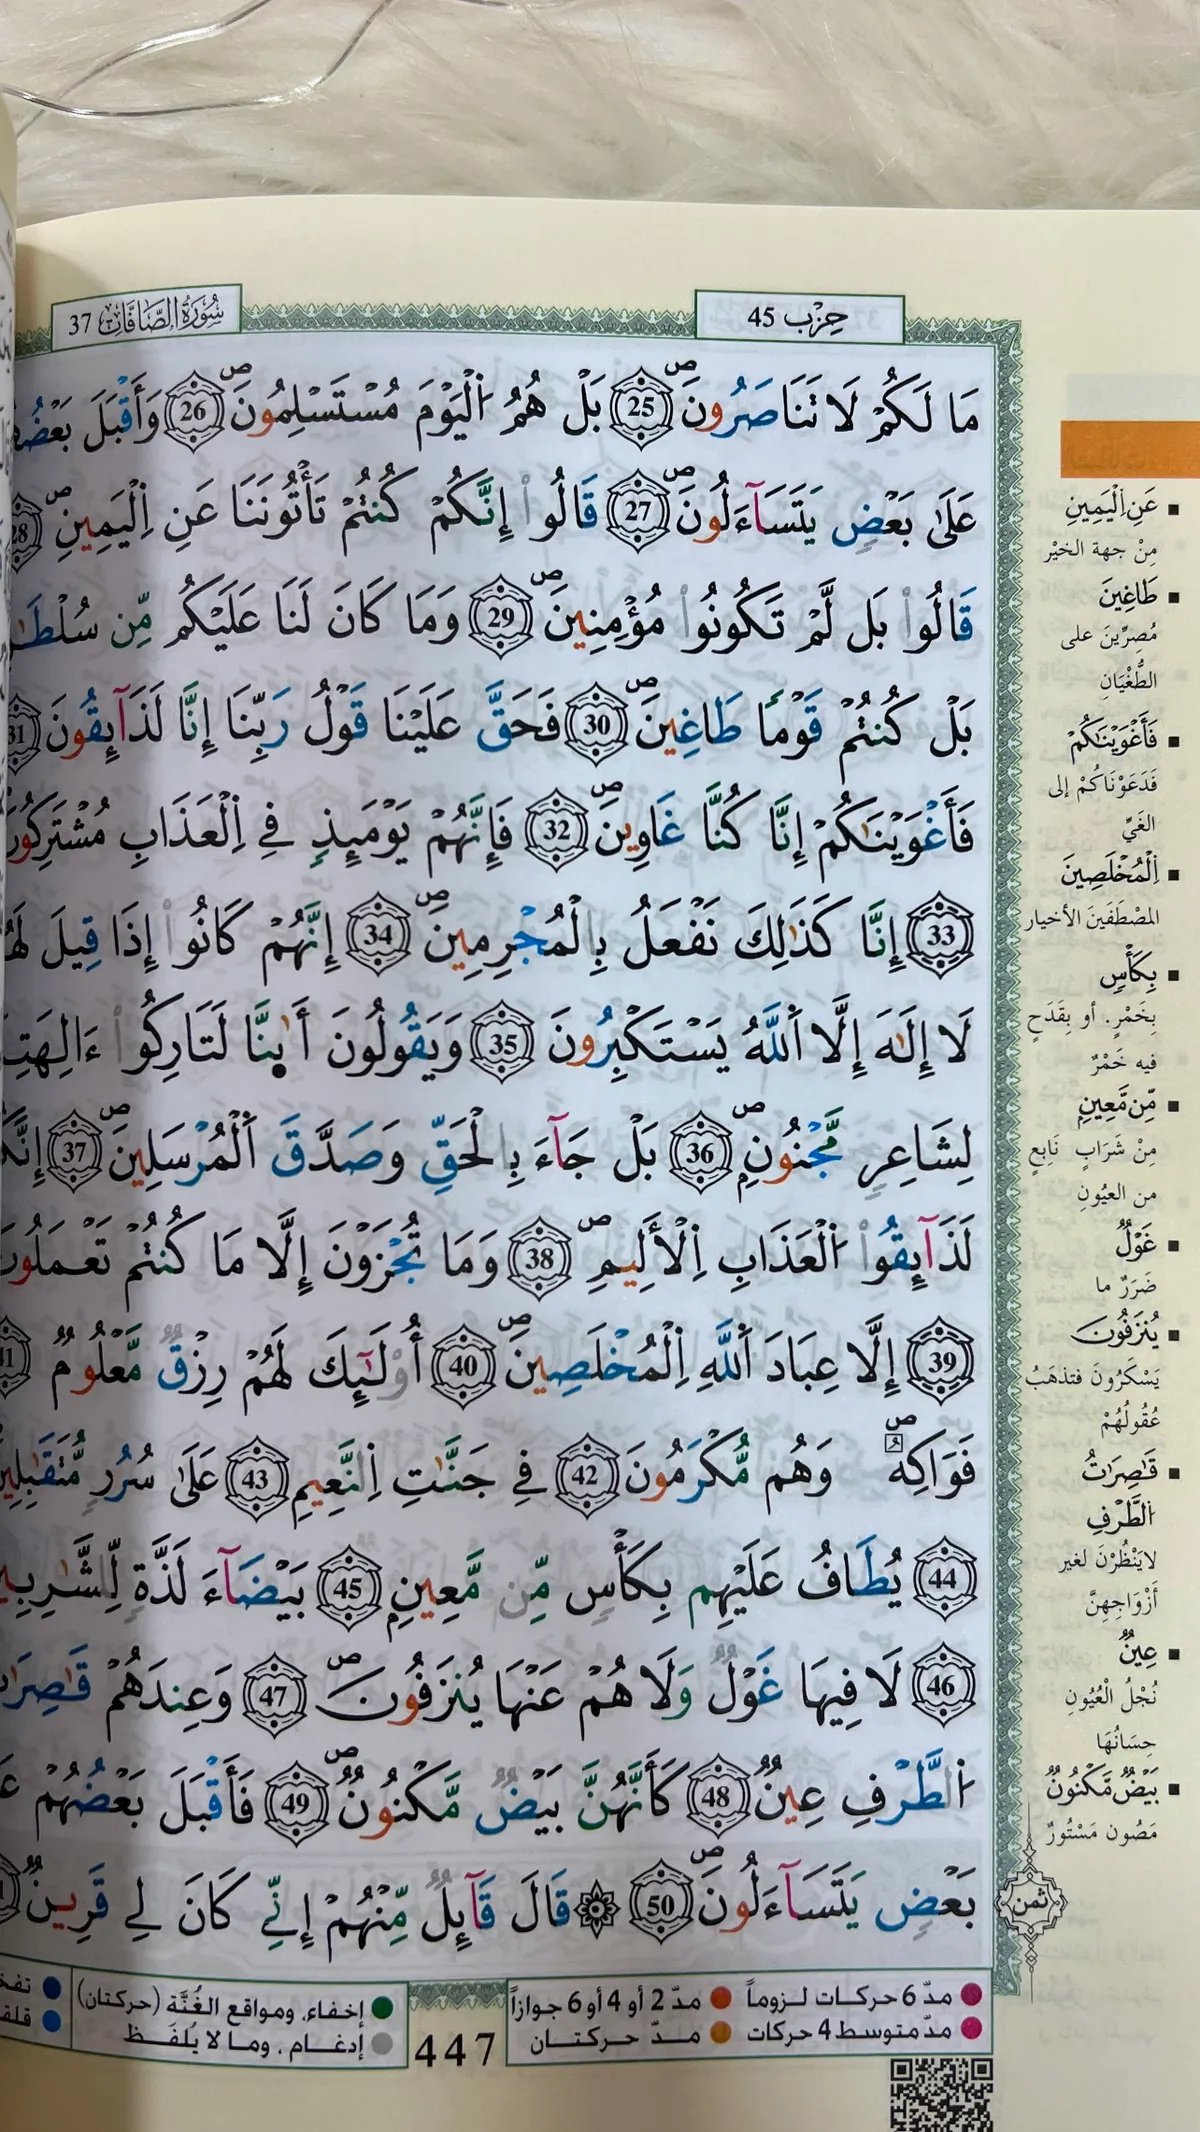 سُورَةُ الصَّافَّات 37
حِزْب 45
مَا لَكُمْ لَا تَنَاصَرُونَ 25 بَلْ هُمُ اُلْيَوْمَ مُسْتَسْلِمُونَ 26 وَأَقْبَلَ
عَلَىٰ بَعْضٍ يَتَسَآءَلُونَ 27 قَالُواْ إِنَّكُمْ كُنتُمْ تَأْتُونَنَا عَنِ اِلْيَمِينِ 28
قَالُواْ بَل لَّمْ تَكُونُواْ مُؤْمِنِينَ 29 وَمَا كَانَ لَنَا عَلَيْكُم مِّن
بَلْ كُنتُمْ قَوْماً طَاغِينَ 30 فَحَقَّ عَلَيْنَا قَوْلُ رَبِّنَا إِنَّا لَذَآئِقُونَ 31
فَأَغْوَيْنَاكُمْ إِنَّا كُنَّا غَاوِينَ 32 فَإِنَّهُمْ يَوْمَئِذٍ فِي اِلْعَذَابِ
33 إِنَّا كَذَٰلِكَ نَفْعَلُ بِالْمُجْرِمِينَ 34 إِنَّهُمْ كَانُواْ إِذَا قِيلَ
لَا إِلَٰهَ إِلَّا اَللَّهُ يَسْتَكْبِرُونَ 35 وَيَقُولُونَ أَئِنَّا لَتَارِكُواْ
لِشَاعِرٍ مَّجْنُونٍ 36 بَلْ جَآءَ بِالْحَقِّ وَصَدَّقَ اَلْمُرْسَلِينَ 37
لَذَآئِقُواْ اُلْعَذَابِ اِلْأَلِيمِ 38 وَمَا تُجْزَوْنَ إِلَّا مَا كُنتُمْ
39 إِلَّا عِبَادَ اَللَّهِ اِلْمُخْلَصِينَ 40 أُوْلَٰٓئِكَ لَهُمْ رِزْقٌ مَّعْلُومٌ 41
فَوَاكِهُ وَهُم مُّكْرَمُونَ 42 فِي جَنَّاتِ اِلنَّعِيمِ 43 عَلَىٰ سُرُرٍ
44 يُطَافُ عَلَيْهِم بِكَأْسٍ مِّن مَّعِينٍ 45 بَيْضَآءَ لَذَّةٍ
46 لَا فِيهَا غَوْلٌ وَلَا هُمْ عَنْهَا يُنزَفُونَ 47 وَعِندَهُمْ
اُلطَّرْفِ عِينٌ 48 كَأَنَّهُنَّ بَيْضٌ مَّكْنُونٌ 49 فَأَقْبَلَ بَعْضُهُمْ
بَعْضٍ يَتَسَآءَلُونَ 50 قَالَ قَآئِلٌ مِّنْهُمْ إِنِّي كَانَ لِي قَرِينٌ
عَنِ اِلْيَمِينِ
مِنْ جهة الخيْر
طَاغِينَ
مُصِرِّينَ على
الطُّغْيَانِ
فَأَغْوَيْنَاكُمْ
فَدَعَوْنَاكُمْ إلى
الغَيِّ
اِلْمُخْلَصِينَ
المصْطَفَينَ الأخيار
بِكَأْسٍ
بِخَمْرٍ. أو بِقَدَحٍ
فيه خَمْرٌ
مِّن مَّعِينٍ
مِنْ شَرَابٍ نَابِعٍ
من العيُونِ
غَوْلٌ
ضَرَرٌ ما
يُنزَفُونَ
يَسْكَرُونَ فتذهَبُ
عُقُولُهُمْ
قَاصِرَاتُ
اُلطَّرْفِ
لا يَنْظُرْنَ لغير
أَزْوَاجِهِنَّ
عِينٌ
نُجْلُ الْعُيُونِ
حِسَانُهَا
بَيْضٌ مَّكْنُونٌ
مَصُون مَسْتُورٌ
ثمن
مدّ 6 حركات لـزوماً
مدّ 2 أو 4 أو 6 جوازاً
مدّ متوسط 4 حركات
مـدّ حركتـان
إخفاء، ومواقع الغُنَّة (حركتان)
إدغـام ، ومـا لا يُلفَـظ
447